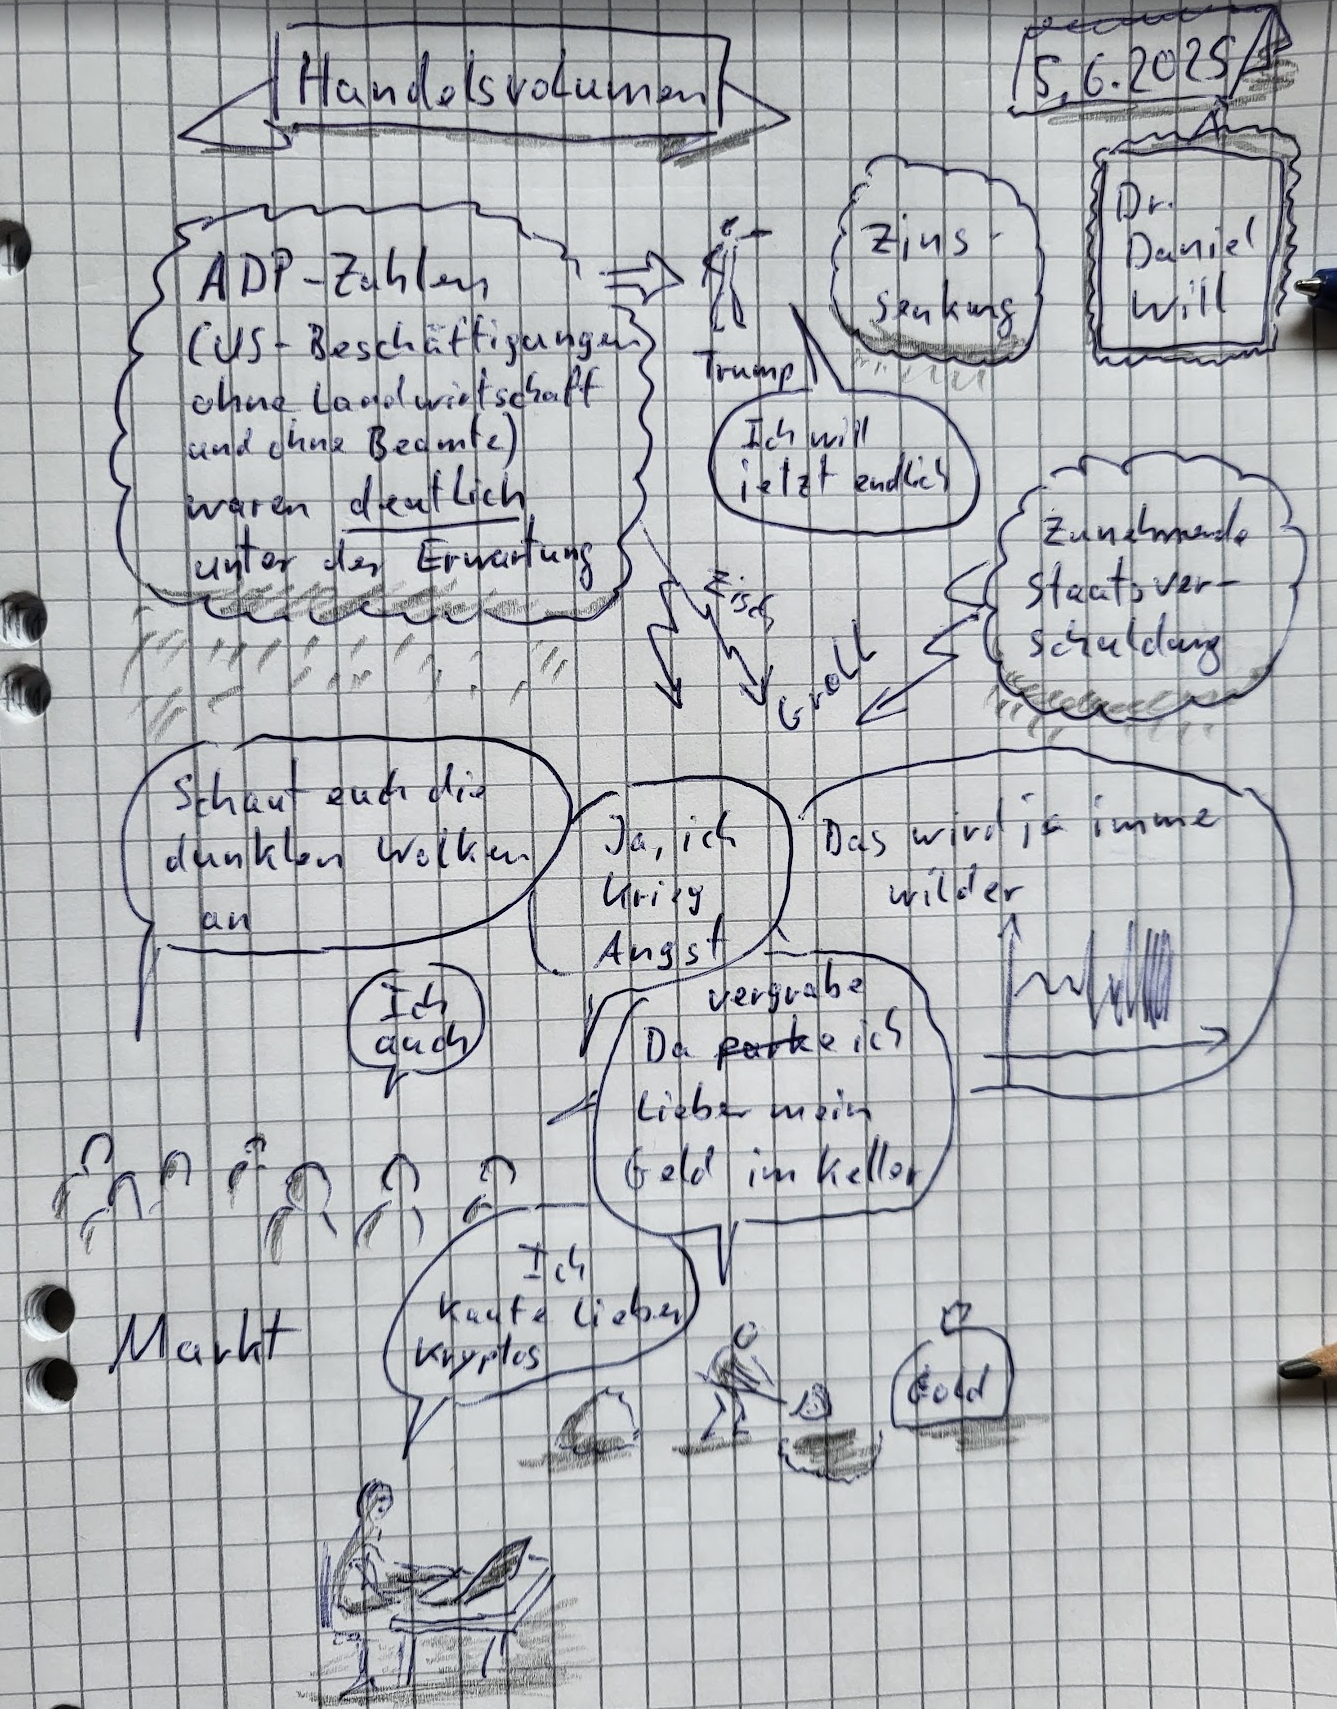 Handelsvolumen
5.6.2025
Dr.
Daniel
Will
ADP-Zahlen
(US-Beschäftigungen
ohne Landwirtschaft
und ohne Beamte)
waren deutlich
unter der Erwartung
Trump
Ich will
jetzt endlich
Zins-
senkung
Zunehmende
Staatsver-
schuldung
Zisch
Groll
Schaut euch die
dunklen Wolken
an
Ja, ich
krieg
Angst
Das wird ja imme
wilder
Ich
auch
vergrabe
Da parke ich
lieber mein
Geld im Keller
Markt
Ich
kaufe lieber
Kryptos
Gold